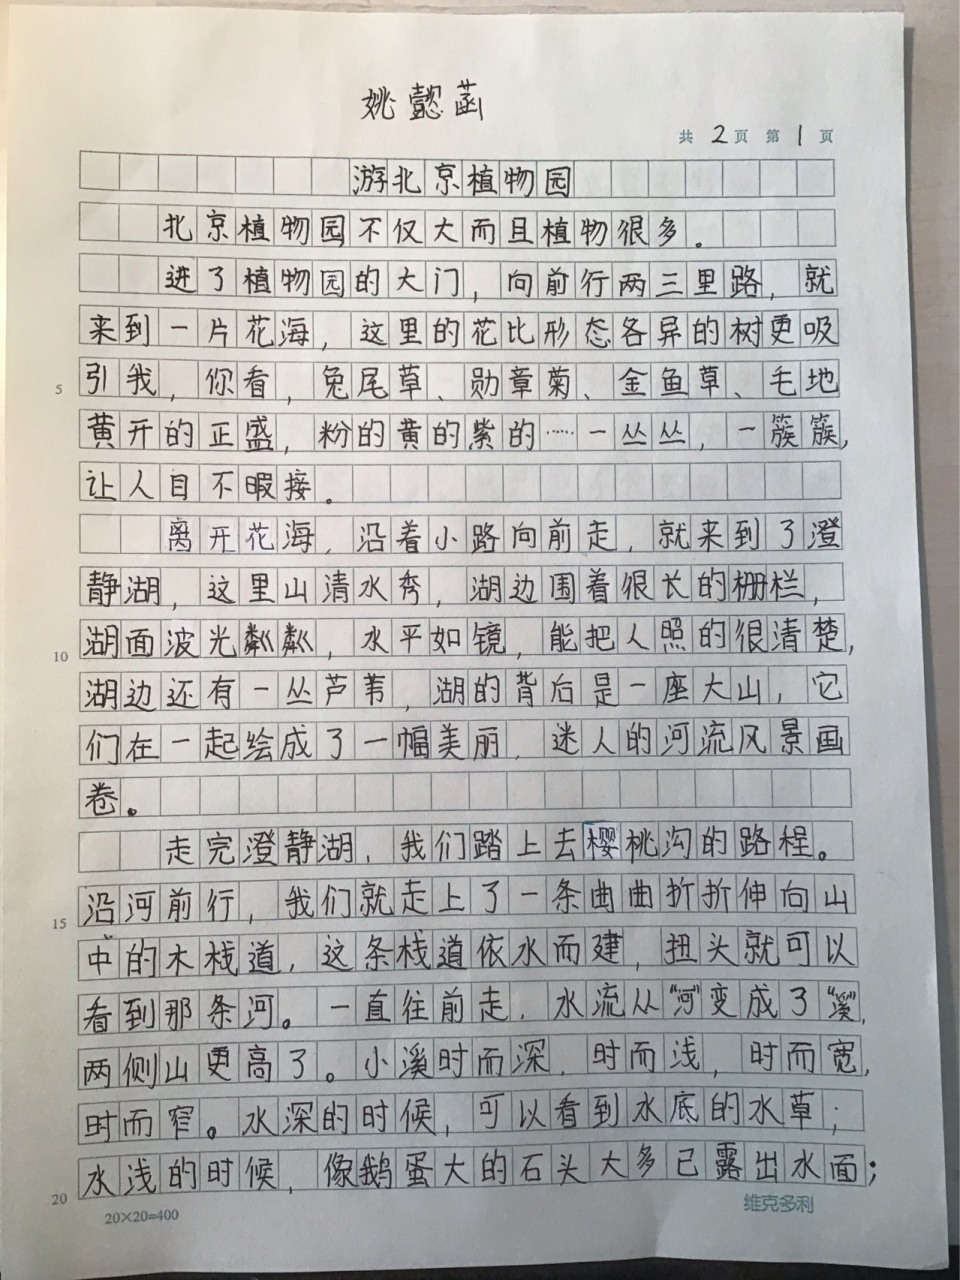 姚懿菡
共2页 第1页
游北京植物园
北京植物园不仅大而且植物很多。
进了植物园的大门，向前行两三里路，就
来到一片花海，这里的花比形态各异的树更吸
5 引我，你看，兔尾草、勋章菊、金鱼草、毛地
黄开的正盛，粉的黄的紫的……一丛丛，一簇簇，
让人目不暇接。
离开花海，沿着小路向前走，就来到了澄
静湖，这里山清水秀，湖边围着很长的栅栏，
10 湖面波光粼粼，水平如镜，能把人照的很清楚，
湖边还有一丛芦苇，湖的背后是一座大山，它
们在一起绘成了一幅美丽、迷人的河流风景画
卷。
走完澄静湖，我们踏上去樱桃沟的路程。
15 沿河前行，我们就走上了一条曲曲折折伸向山
中的木栈道，这条栈道依水而建，扭头就可以
看到那条河。一直往前走，水流从“河”变成了“溪”，
两侧山更高了。小溪时而深，时而浅，时而宽，
时而窄。水深的时候，可以看到水底的水草；
20 水浅的时候，像鹅蛋大的石头大多已露出水面；
20×20=400
维克多利